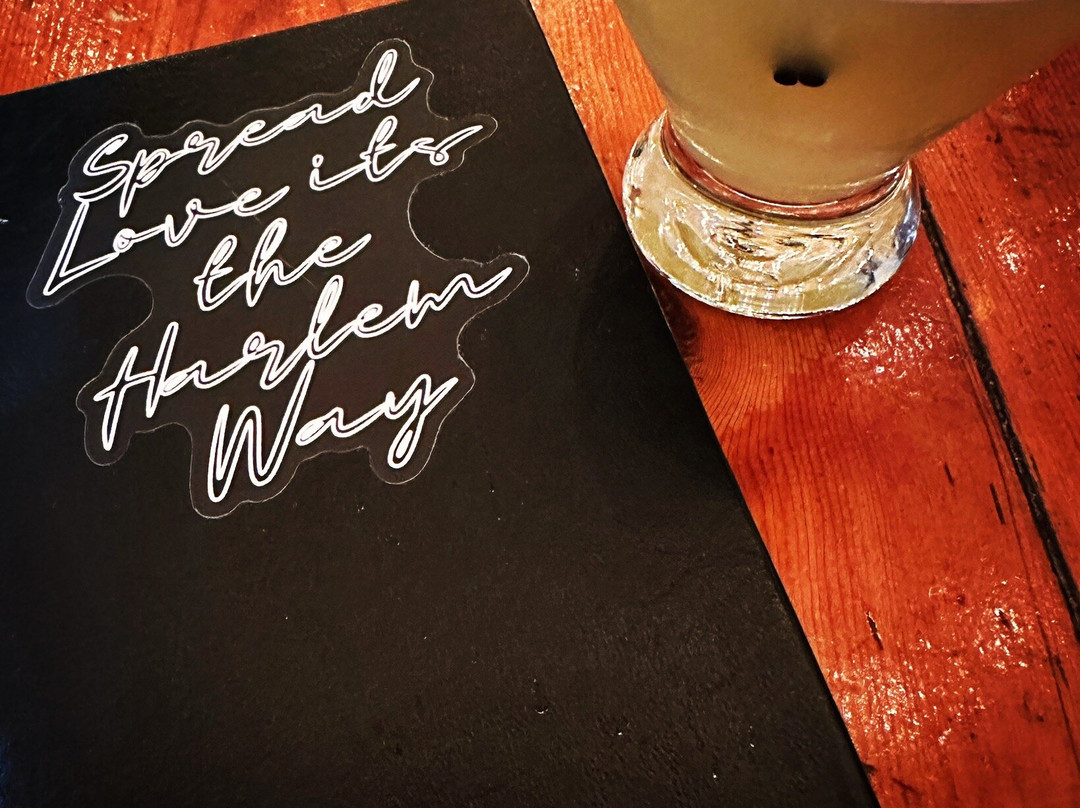 Spread
Love its
the
Harlem
Way